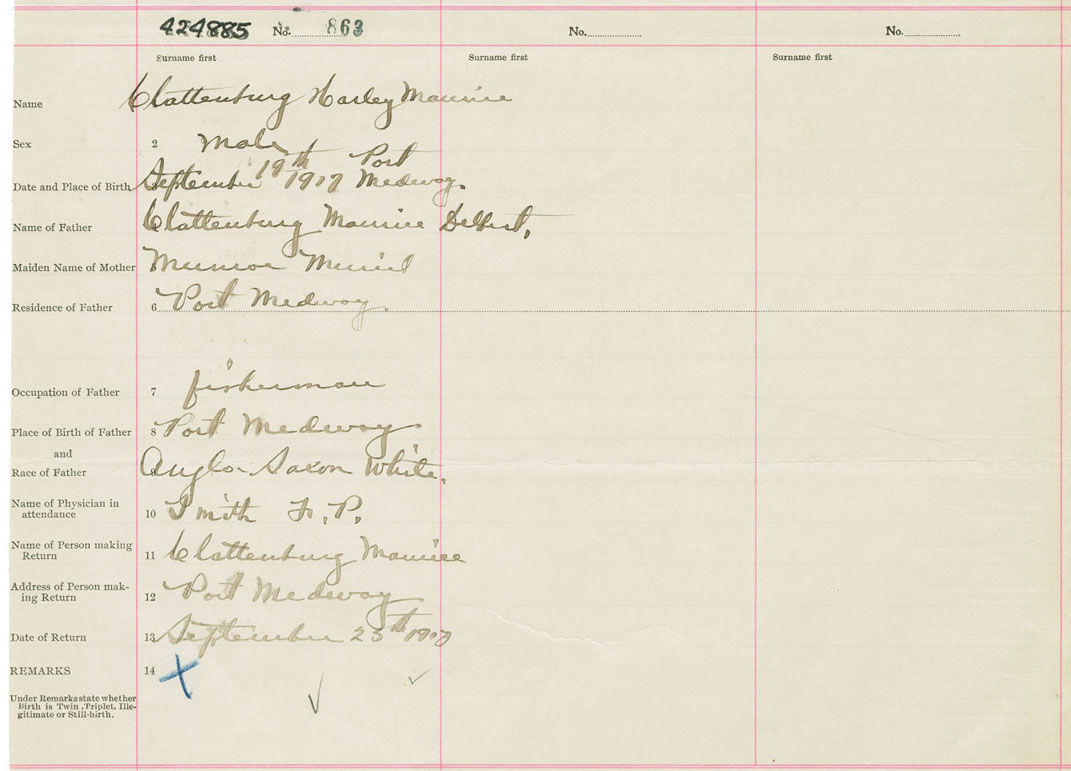 424885 No. 863 No. No.
Surname first Surname first Surname first
Name Clattenburg Harley Maurice
Sex 2 Male
Date and Place of Birth September 19th 1917 Port Medway.
Name of Father Clattenburg Maurice Delbert,
Maiden Name of Mother Munroe Muriel
Residence of Father 6 Port Medway.
Occupation of Father 7 fisherman
Place of Birth of Father 8 Port Medway
and
Race of Father Anglo-Saxon White.
Name of Physician in
attendance 10 Smith F. P.
Name of Person making
Return 11 Clattenburg Maurice
Address of Person mak-
ing Return 12 Port Medway
Date of Return 13 September 25th
REMARKS 14
Under Remarks state whether
Birth is Twin, Triplet, Ille-
gitimate or Still-birth.